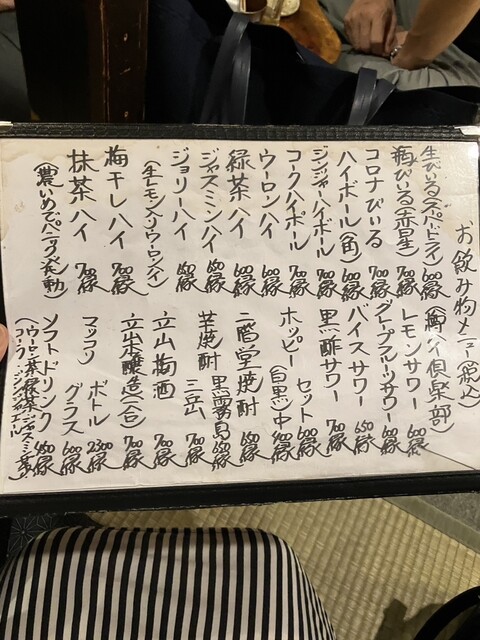 お飲み物メニュー(税込)
生びいる(スパードライ) 600縁
瓶びいる(赤星) 700縁
コロナびいる 700縁
ハイボール(角) 600縁
ジンジャーハイボール 700縁
コークハイボール 700縁
ウーロンハイ 600縁
緑茶ハイ 600縁
ジャスミンハイ 650縁
ジョリーハイ 650縁
(生レモン入りウーロンハイ)
梅干しハイ 700縁
抹茶ハイ 700縁
(濃いめでパニック発動)
(酎ハイ倶楽部)
レモンサワー 600縁
グレープフルーツサワー 600縁
バイスサワー 650縁
黒酢サワー 700縁
ホッピー セット 600縁
(白黒)中 400縁
二階堂焼酎 650縁
芋焼酎 黒霧島 650縁
三岳 700縁
立山梅酒 700縁
立山醸造(一合) 700縁
マッコリ ボトル 2300縁
グラス 600縁
ソフトドリンク 450縁
(ウーロン茶・緑茶・ジャスミン茶・
コーク・ジンジャーエール)